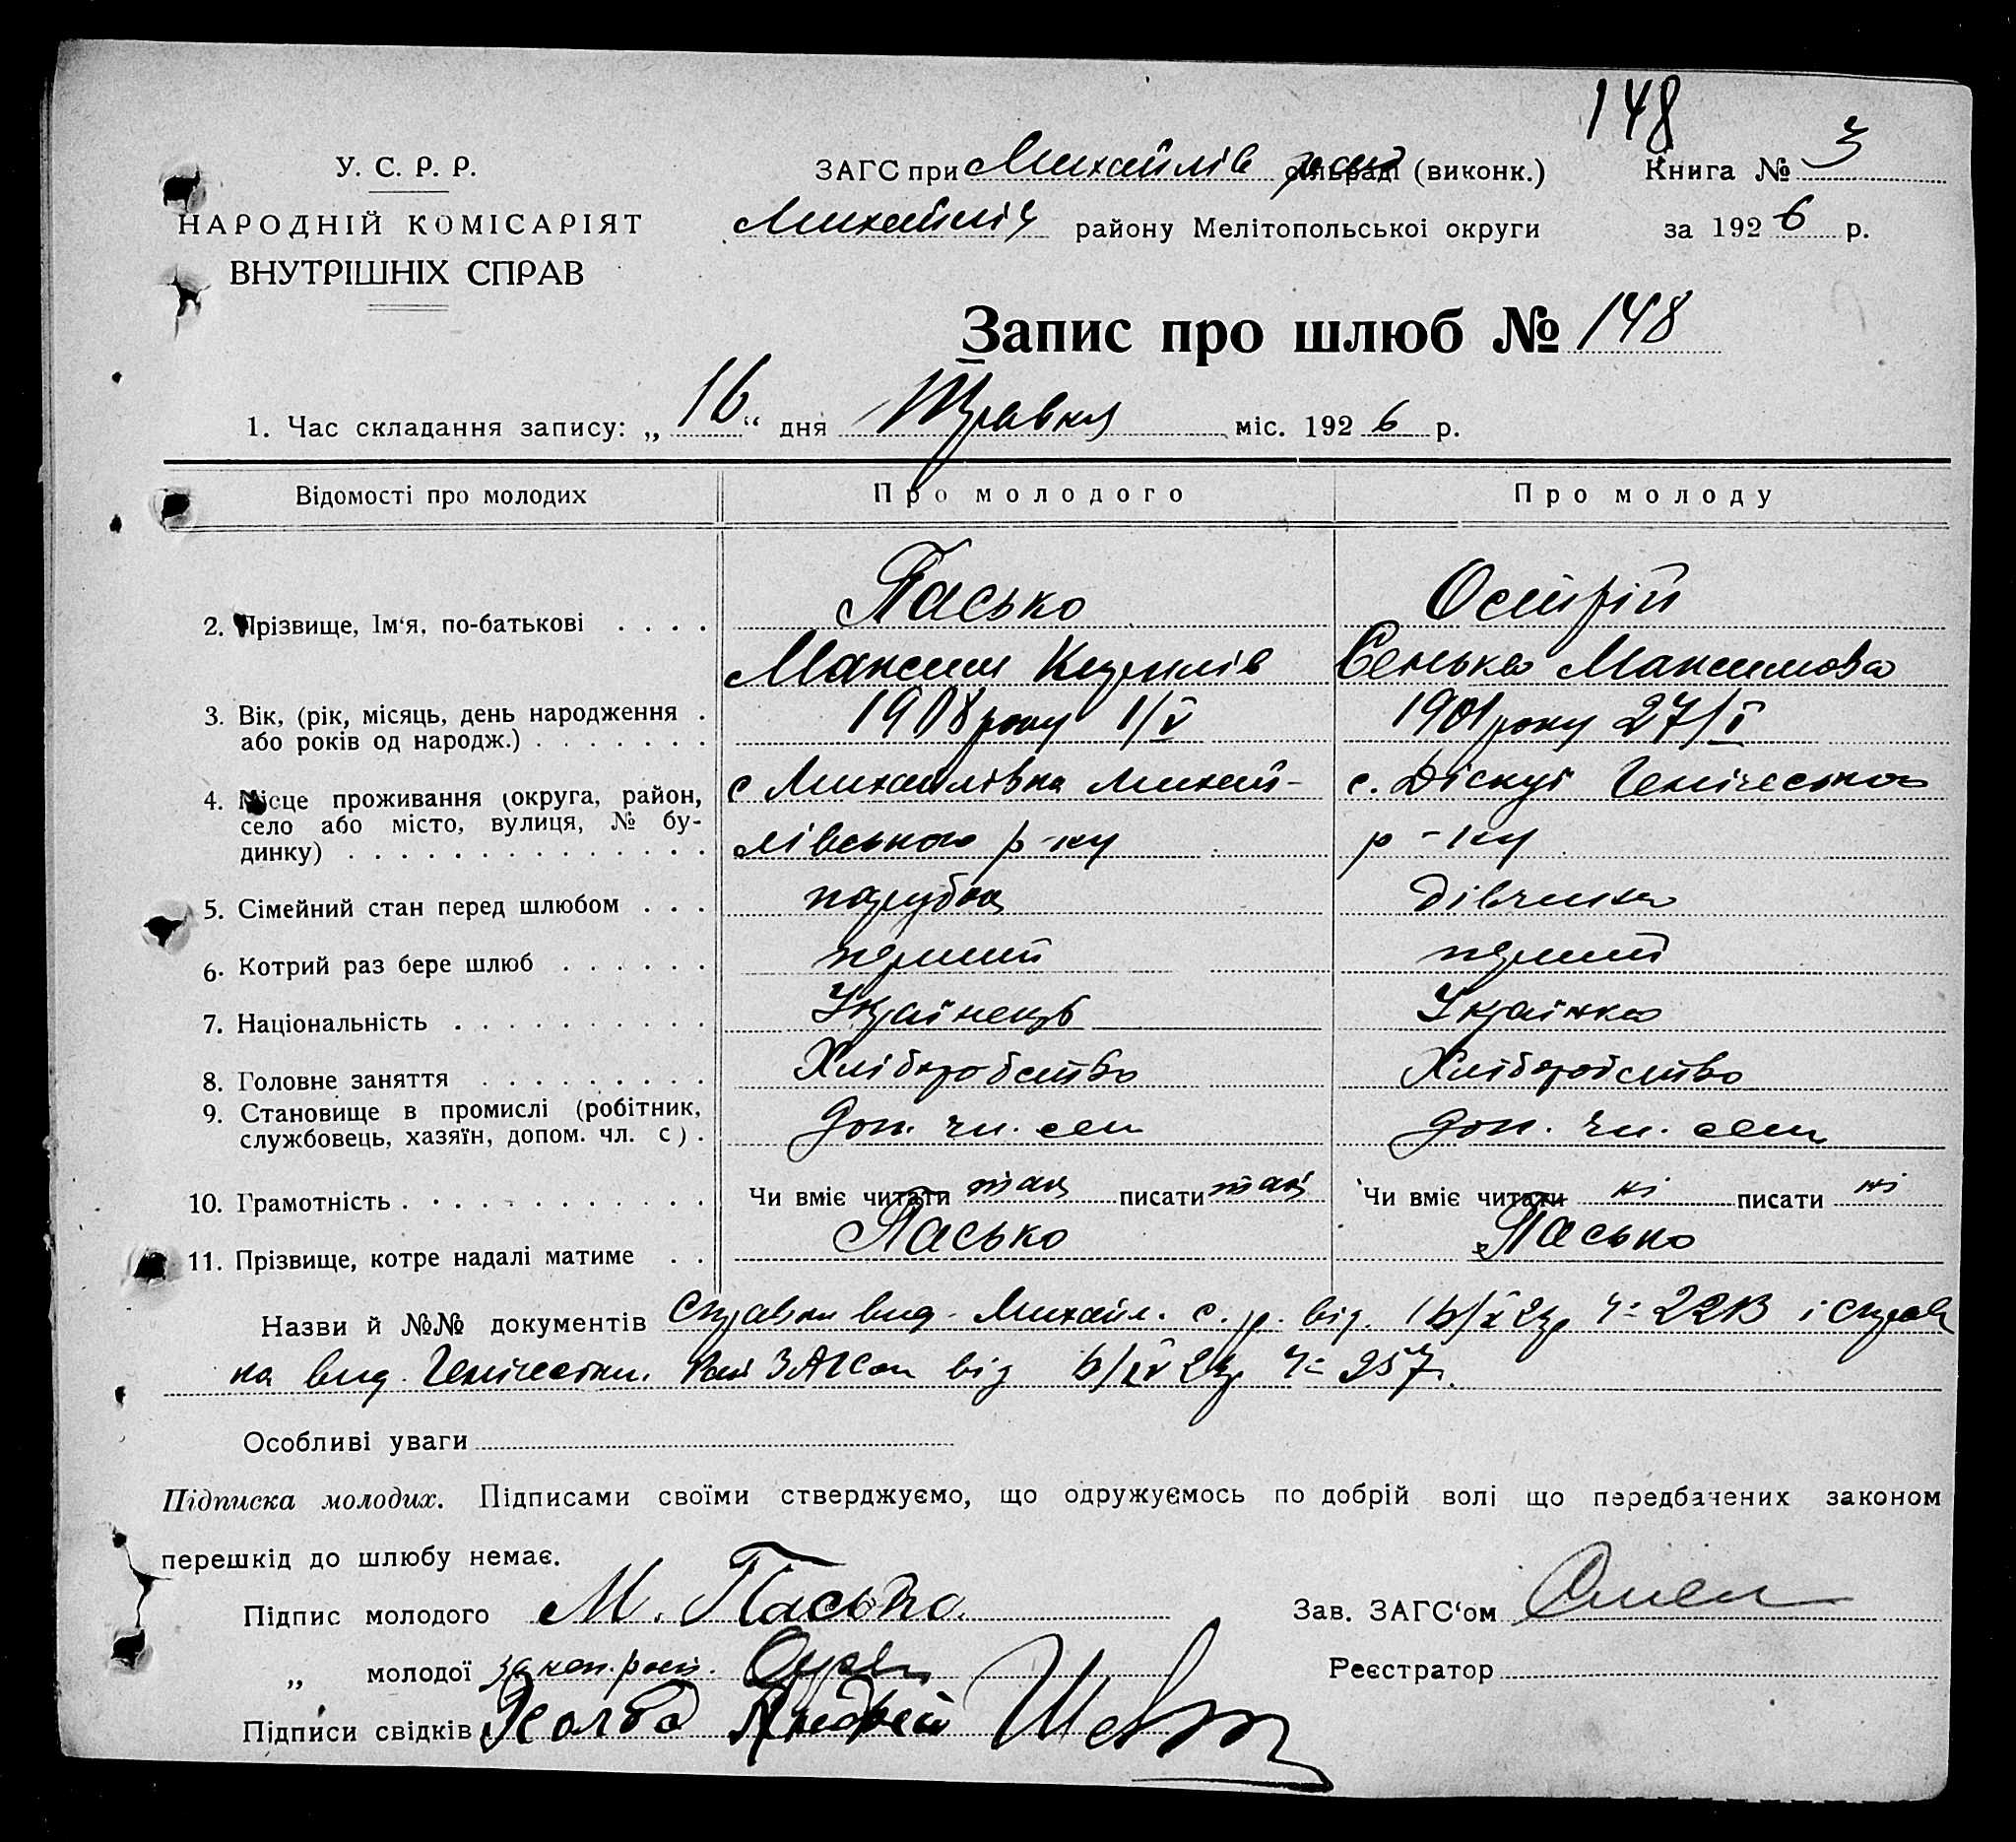 148
У. С. Р. Р.
НАРОДНІЙ КОМІСАРІЯТ
ВНУТРІШНІХ СПРАВ
ЗАГС при Михайлів сільраді (виконк.) Книга № 3
району Мелітопольськоі округи за 1926 р.
Запис про шлюб № 148
1. Час складання запису: „16“ дня Травня міс. 1926 р.
Відомості про молодих Про молодого Про молоду
2. Прізвище, Ім‘я, по-батькові . . . . Пасько Острій
Максим Кирилів Сенька Максимова
3. Вік, (рік, місяць, день народження . 1908 року 1/V 1901 року 27/I
або років од народж.) . . . . . . .
4. Місце проживання (округа, район, с Михайлівка Михай- с. Генічеська
село або місто, вулиця, № бу-
динку) . . . . . . . . . . . . . . лівського р-ку р-ку
5. Сімейний стан перед шлюбом . . . парубок дівчина
6. Котрий раз бере шлюб . . . . . . перший перший
7. Національність . . . . . . . . . . Українець Українка
8. Головне заняття . . . . . . . . . Хліборобство Хліборобство
9. Становище в промислі (робітник,
службовець, хазяїн, допом. чл. с) . доп. чл. сем доп. чл. сем
10. Грамотність . . . . . . . . . . . . Чи вміє читати так писати так Чи вміє читати ні писати ні
11. Прізвище, котре надалі матиме . . Пасько Пасько
Назви й №№ документів Справки вид. Михайл. с. р. від і справ
ка вид. Генічеськ. Рай ЗАГСом від 257.
Особливі уваги
Підписка молодих. Підписами своїми стверджуємо, що одружуємось по добрій волі що передбачених законом
перешкід до шлюбу немає.
Підпис молодого М. Пасько. Зав. ЗАГС‘ом
„ молодої Реєстратор
Підписи свідків Андрей